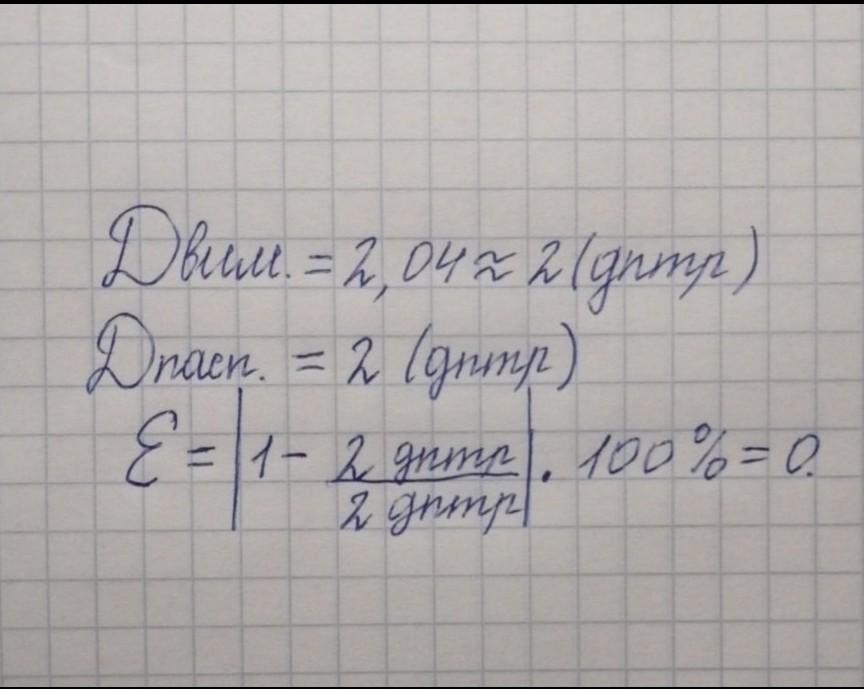 Двим. = 2,04 ≈ 2 (дптр)
Dпасп. = 2 (дптр)
ℰ = |1 - 2 дптр / 2 дптр| · 100% = 0.